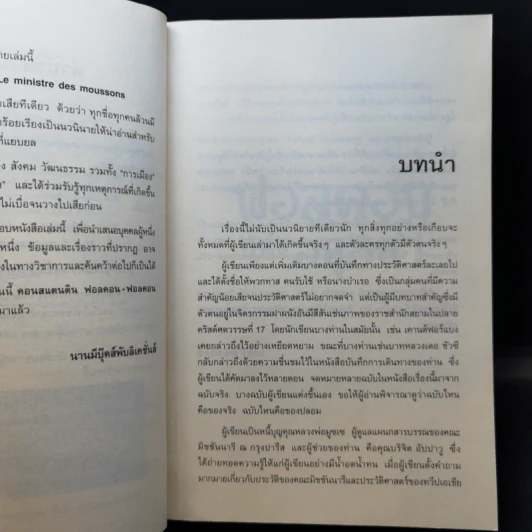 ายเล่มนี้
Le ministre des moussons
เสียทีเดียว ด้วยว่า ทุกชื่อทุกคนล้วนมี
ร้อยเรียงเป็นนวนิยายให้น่าอ่านสำหรับ
ที่แยบยล
ง สังคม วัฒนธรรม รวมทั้ง "การเมือง"
" และได้ร่วมรับรู้ทุกเหตุการณ์ที่เกิดขึ้น
ไม่เบื่อจนวางไปเสียก่อน
อบหนังสือเล่มนี้ เพื่อนำเสนอบุคคลผู้หนึ่ง
หนึ่ง ข้อมูลและเรื่องราวที่ปรากฏ อาจ
งในทางวิชาการและค้นคว้าต่อไปก็เป็นได้
นนี้ คอนสแตนติน ฟอลคอน-ฟอลคอน
มาแล้ว
นานมีบุ๊คส์พับลิเคชั่นส์
บทนำ
เรื่องนี้ไม่นับเป็นนวนิยายทีเดียวนัก ทุกสิ่งทุกอย่างหรือเกือบจะ
ทั้งหมดที่ผู้เขียนเล่ามาได้เกิดขึ้นจริงๆ และตัวละครทุกตัวมีตัวตนจริงๆ
ผู้เขียนเพียงแต่เพิ่มเติมบางตอนที่บันทึกทางประวัติศาสตร์ละเลยไป
และได้ตั้งชื่อให้พวกทาส คนรับใช้ หรือนางบำเรอ ซึ่งเป็นกลุ่มคนที่มีความ
สำคัญน้อยเสียจนประวัติศาสตร์ไม่อยากจดจำ แต่เป็นผู้มีบทบาทสำคัญซึ่งมี
ตัวตนอยู่ในจิตรกรรมฝาผนังอันมีสีสันเช่นภาพของราชสำนักสยามในปลาย
คริสต์ศตวรรษที่ 17 โดยนักเขียนบางท่านในสมัยนั้น เช่น เดานต์ฟอร์แบง
เคยกล่าวถึงไว้อย่างเหยียดหยาม ขณะที่บางท่านเช่นบาทหลวงเดอ ชัวซี
กลับกล่าวถึงด้วยความชื่นชมไว้ในหนังสือบันทึกการเดินทางของท่าน ซึ่ง
ผู้เขียนได้คัดมาลงไว้หลายตอน จดหมายหลายฉบับในหนังสือเรื่องนี้มาจาก
ฉบับจริง บางฉบับผู้เขียนแต่งขึ้นเอง ขอให้ผู้อ่านพิจารณาดูว่าฉบับไหน
คือของจริง ฉบับไหนคือของปลอม
ผู้เขียนเป็นหนี้บุญคุณหลวงพ่อมูซเซ ผู้ดูแลแผนกสารบรรณของคณะ
มิชชันนารี ณ กรุงปารีส และผู้ช่วยของท่าน คือคุณบริจิต อัปปาวู ซึ่ง
ได้ถ่ายทอดความรู้ให้แก่ผู้เขียนอย่างมีน้ำอดน้ำทน เมื่อผู้เขียนตั้งคำถาม
มากมายเกี่ยวกับประวัติของคณะมิชชันนารีและประวัติศาสตร์ของทวีปเอเชีย